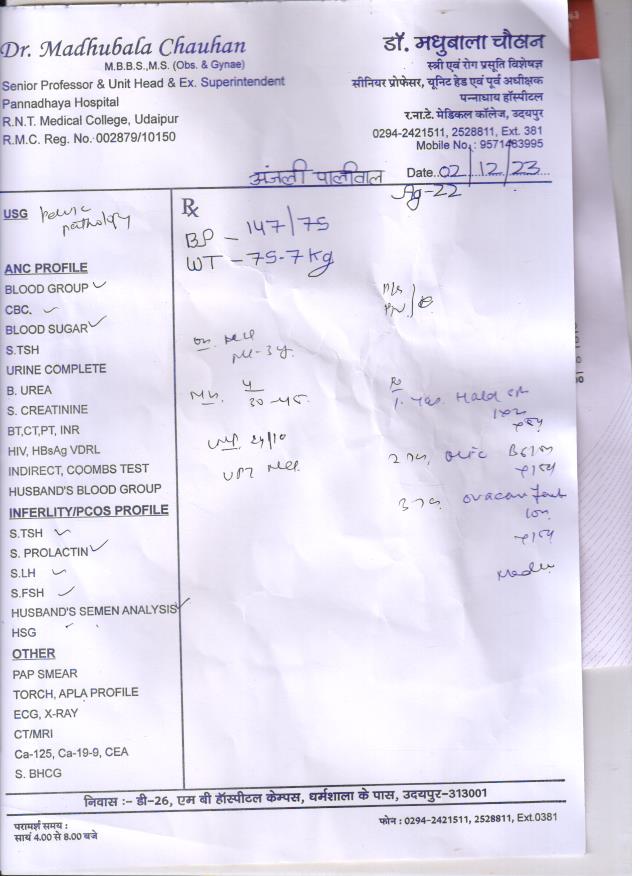 Dr. Madhubala Chauhan
M.B.B.S.,M.S. (Obs. & Gynae)
Senior Professor & Unit Head & Ex. Superintendent
Pannadhaya Hospital
R.N.T. Medical College, Udaipur
R.M.C. Reg. No. 002879/10150
डॉ. मधुबाला चौहान
स्त्री एवं रोग प्रसूति विशेषज्ञ
सीनियर प्रोफेसर, यूनिट हेड एवं पूर्व अधीक्षक
पन्नाधाय हॉस्पीटल
र.ना.टे. मेडिकल कॉलेज, उदयपुर
0294-2421511, 2528811, Ext. 381
Mobile No. : 9571463995
अंजली पालीवाल Date..02/12/23
Ag-22
USG pelvic
pathology
ANC PROFILE
BLOOD GROUP ✓
CBC. ✓
BLOOD SUGAR ✓
S.TSH
URINE COMPLETE
B. UREA
S. CREATININE
BT,CT,PT, INR
HIV, HBsAg VDRL
INDIRECT, COOMBS TEST
HUSBAND'S BLOOD GROUP
INFERLITY/PCOS PROFILE
S.TSH ✓
S. PROLACTIN ✓
S.LH ✓
S.FSH ✓
HUSBAND'S SEMEN ANALYSIS ✓
HSG
OTHER
PAP SMEAR
TORCH, APLA PROFILE
ECG, X-RAY
CT/MRI
Ca-125, Ca-19-9, CEA
S. BHCG
℞
BP - 147/75
WT - 75-7 Kg
30-45
LMP 24/10
UPT
निवास :- डी-26, एम बी हॉस्पीटल केम्पस, धर्मशाला के पास, उदयपुर-313001
परामर्श समय :
सायं 4.00 से 8.00 बजे
फोन : 0294-2421511, 2528811, Ext.0381